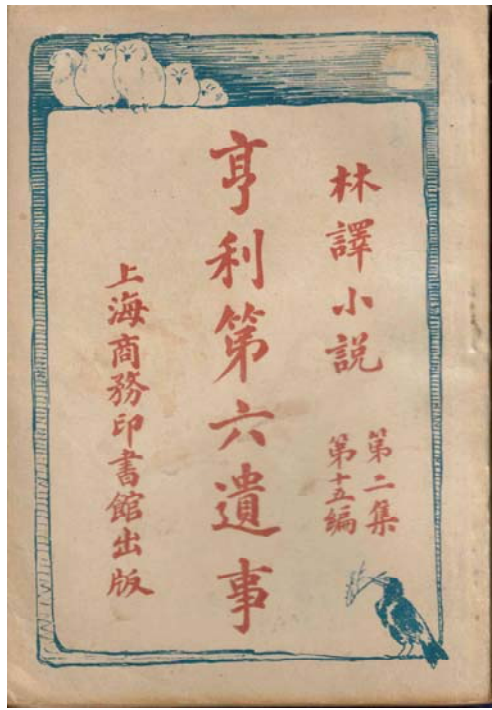 林譯小説
第二集
第十五編
亨利第六遺事
上海商務印書館出版